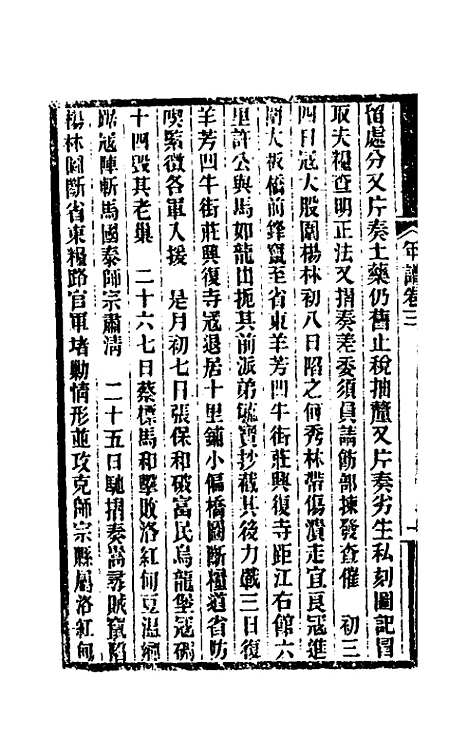 年譜卷三
留處分又片奏土藥仍舊止稅抽釐又片奏劣生私刻圖記冒
取夫糧查明正法又摺奏差委須員請飭部揀發查催 初三
四日寇大股圍楊林初八日昭之何秀林帶傷潰走宜良寇進
大板橋前鋒竄至省東羊芳四牛街莊興復寺距江右館六
里許公與馬如龍出扼其前派弟毓寶抄截其後力戰三日復
羊芳四牛街莊興復寺寇退居十里鋪小偏橋圖斷糧道省防
喫緊徵各軍入援 是月初七日張保和破富民烏龍堡寇碉
十四毀其老巢 二十六七日蔡標馬和擊敗洛紅甸豆溫鄉
踞寇陣斬馬國泰師宗肅清 二十五日馳摺奏嵩尋賊竄陷
楊林圖斷省東糧路官軍堵勦情形並攻克師宗縣屬洛紅甸